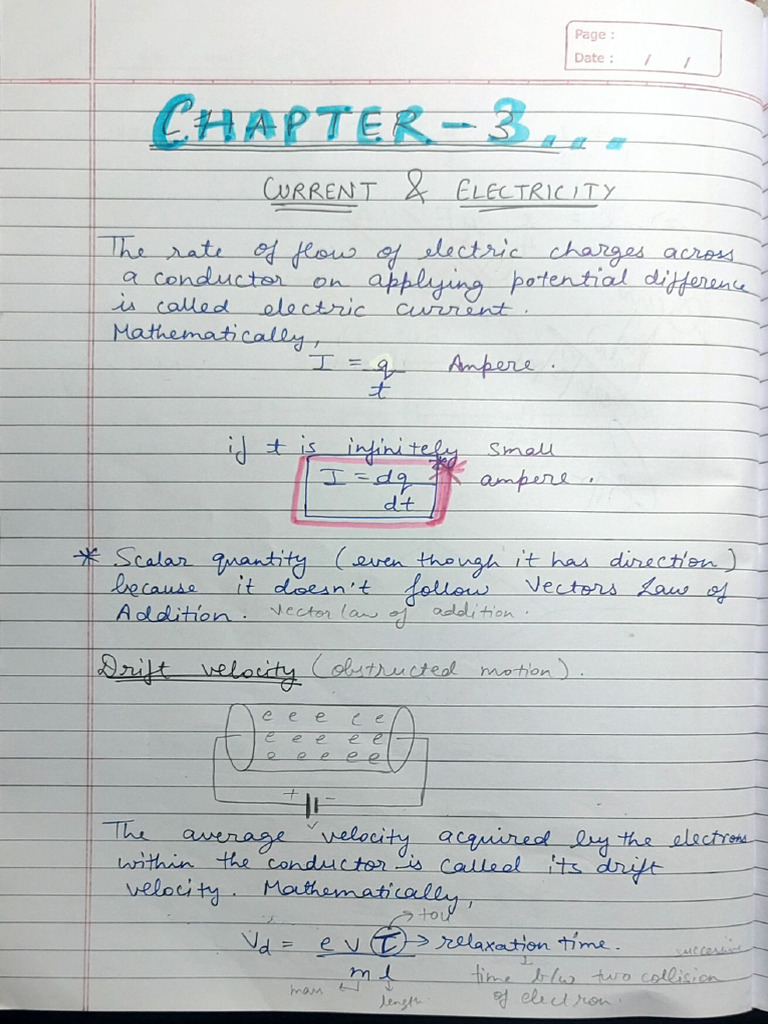 Page :
Date : / /
CHAPTER - 3...
CURRENT & ELECTRICITY
The rate of flow of electric charges across
a conductor on applying potential difference
is called electric current.
Mathematically,
I = q Ampere.
t
if t is infinitely small
I = dq ampere.
dt
* Scalar quantity (even though it has direction)
because it doesn't follow Vectors Law of
Addition. Vector law of addition.
Drift velocity (obstructed motion).
e e e e e
e e e e e
e e e e e
+ -
The average velocity acquired by the electrons
within the conductor is called its drift
velocity. Mathematically,
→ tou
Vd = e V τ → relaxation time. successive
m l time b/w two collision
mass length of electron.